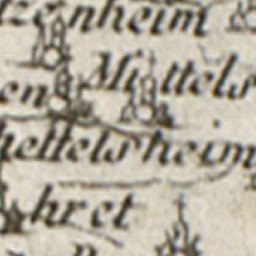 zenheim
Mittels
en
hettelsheim
hret